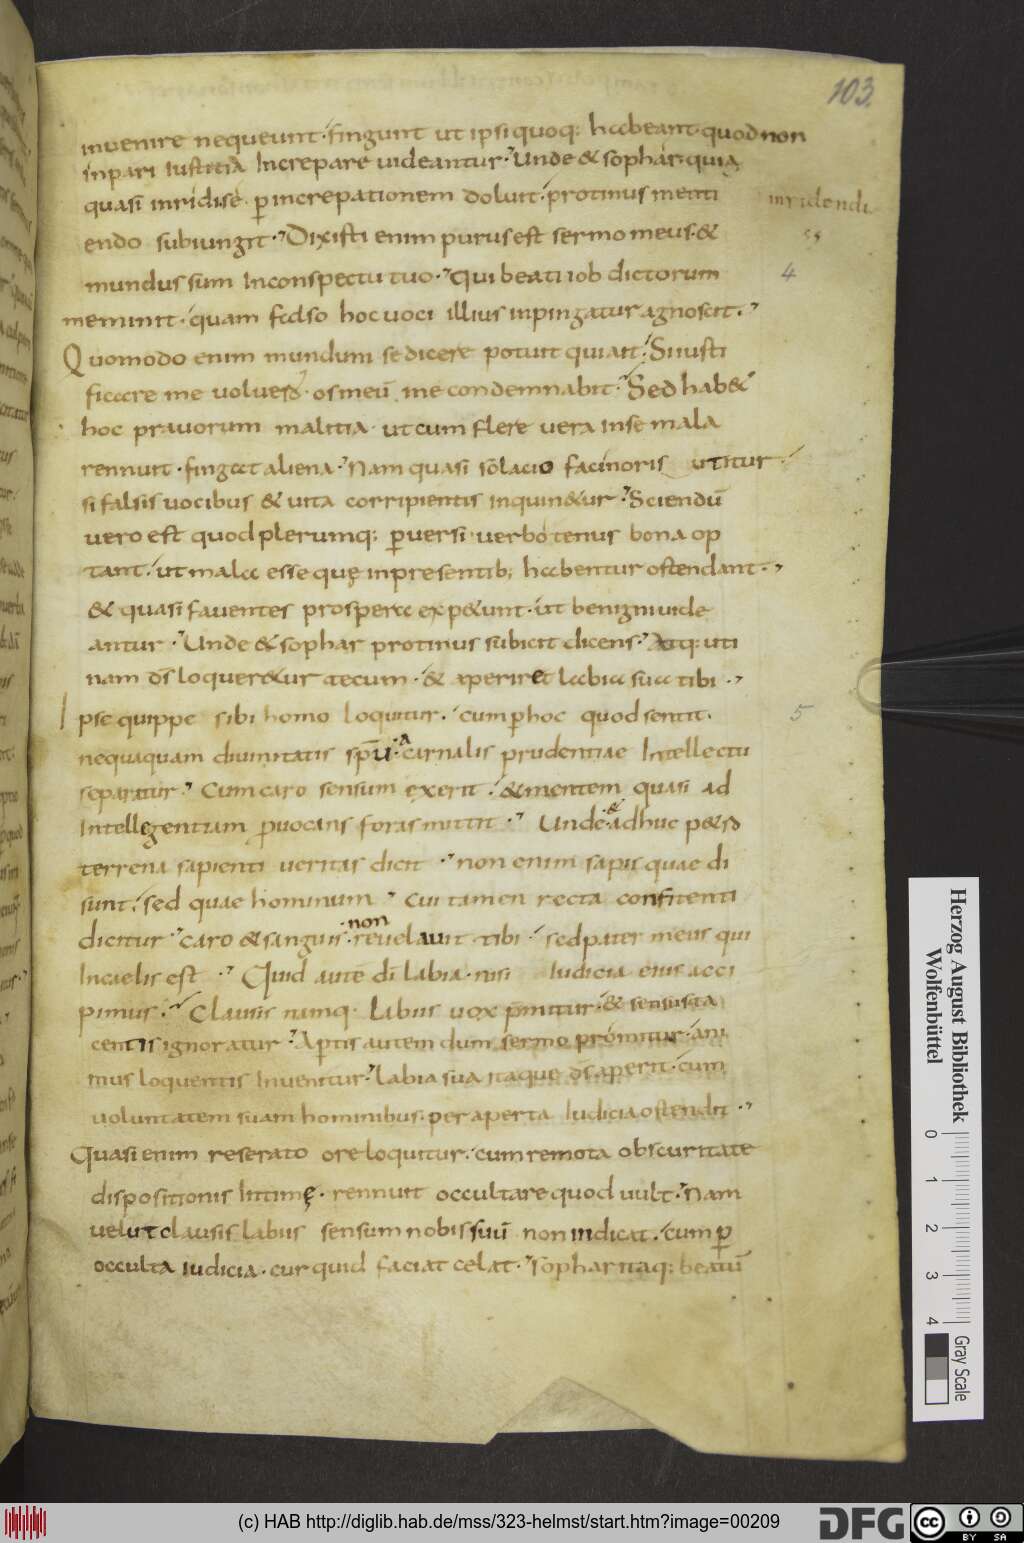 103.
inuenire nequeunt · fingunt ut ipsi quoq: habeant · quod non
inpari iustitia Increpare uideantur · Unde & sophar · quia
quasi inridisse p increpationem doluit · protinus menti
inridendi
endo subiungit · Dixisti enim purus est sermo meus · &
mundus sum Inconspectu tuo · Qui beati iob dictorum
4
meminit · quam falso hoc uoci illius inpingatur agnoscit ·
Quomodo enim mundum se dicere potuit qui ait · Si iusti
ficare me uoluero · os meū me condemnabit · Sed hab&
hoc prauorum malitia · ut cum flere uera Inse mala
rennuit · fingat aliena · Nam quasi solacio facinoris utitur
si falsis uocibus & uita corripientis inquin&ur · Sciendū
uero est quod plerumq: puersi uerbo tenus bona op
tant · ut mala esse quę inpresentib; habentur ostendant ·
& quasi fauentes prospera exp&unt · ut benigni uide
antur · Unde & sophar protinus subicit dicens · Atq: uti
nam d̄s loquer&ur tecum · & aperir& labia sua tibi ·
5
Ipse quippe sibi homo loquitur · cum p hoc quod sentit ·
nequaquam diuinitatis sp̄ū · a carnalis prudentiae Intellectu
separatur · Cum caro sensum exerit · & mentem quasi ad
Intellegentiam puocans foras mittit · Unde · & adhuc p&ro
terrena sapienti ueritas dicit · non enim sapis quae di
sunt · sed quae hominum · Cui tamen recta confitenti
dicitur · caro & sanguis · non reuelauit tibi · sed pater meus qui
Incaelis est · Quid autē di labia · nisi Iudicia eius acci
pimus · Clausis namq · labiis uox pmitur · & sensus ta
centis ignoratur · Aptis autem dum sermo promitur · ani
mus loquentis Inuenitur · labia sua itaque d̄s aperit · cum
uoluntatem suam hominibus · per aperta Iudicia ostendit ·
Quasi enim reserato ore loquitur · cum remota obscuritate
dispositionis Intimę · rennuit occultare quod uult · Nam
uelut clausis labiis sensum nobis suū non indicat · cum p
occulta iudicia · cur quid faciat celat · Sophar itaq: beatū
Herzog August Bibliothek
Wolfenbüttel
0 1 2 3 4
Gray Scale
(c) HAB http://diglib.hab.de/mss/323-helmst/start.htm?image=00209
DFG
cc BY SA